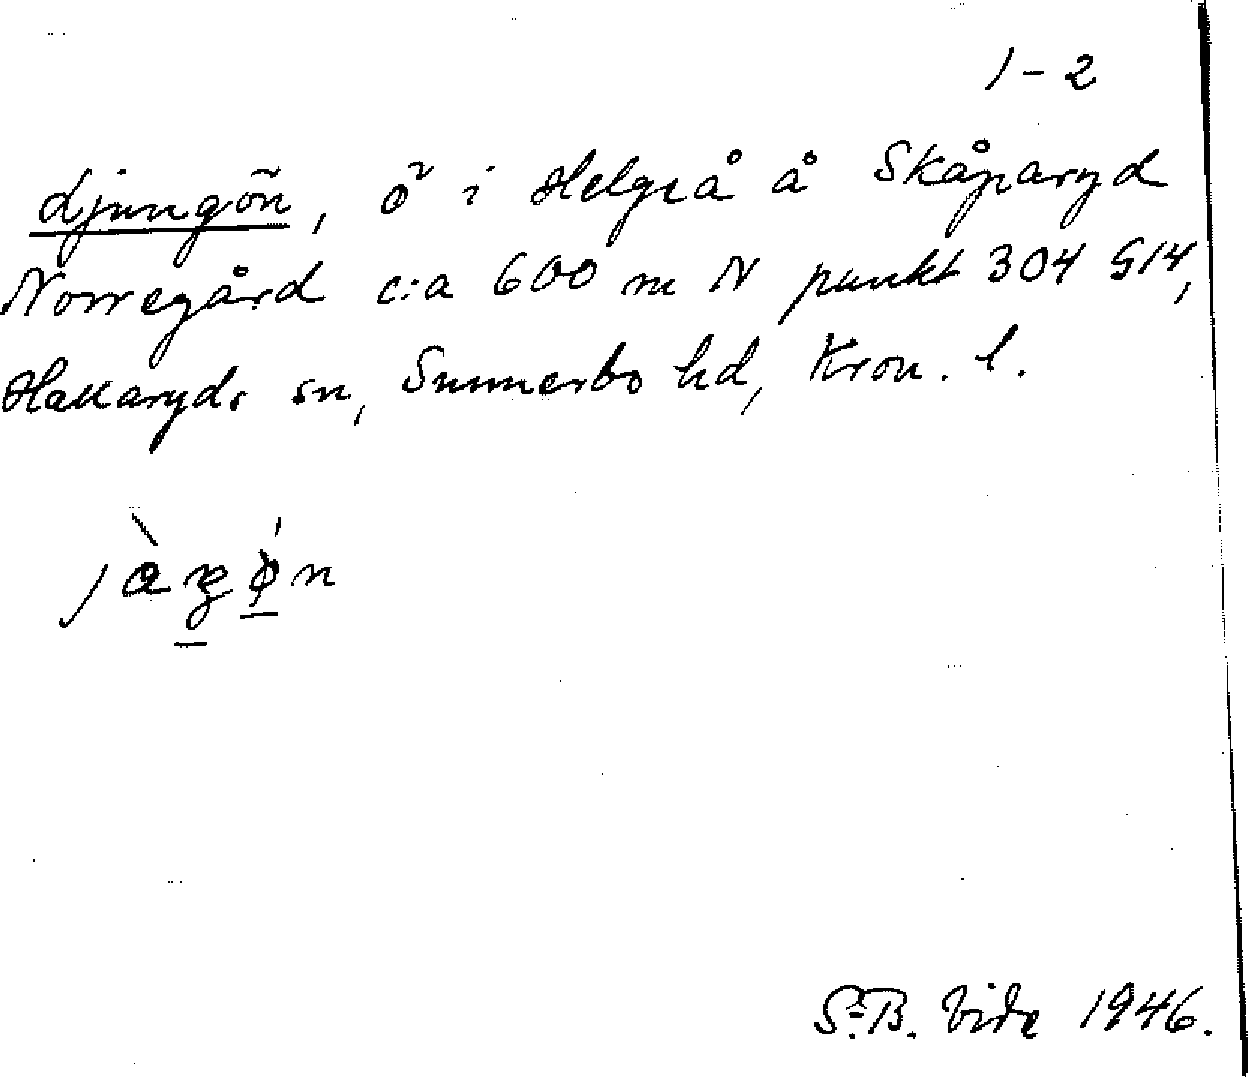 1-2
Ljungön, ö i Helgeå å Skåparyd
Norregård c:a 600 m N punkt 304 G14,
Hallaryds sn, Sunnerbo hd, Kron. l.
S.B. Vide 1946.